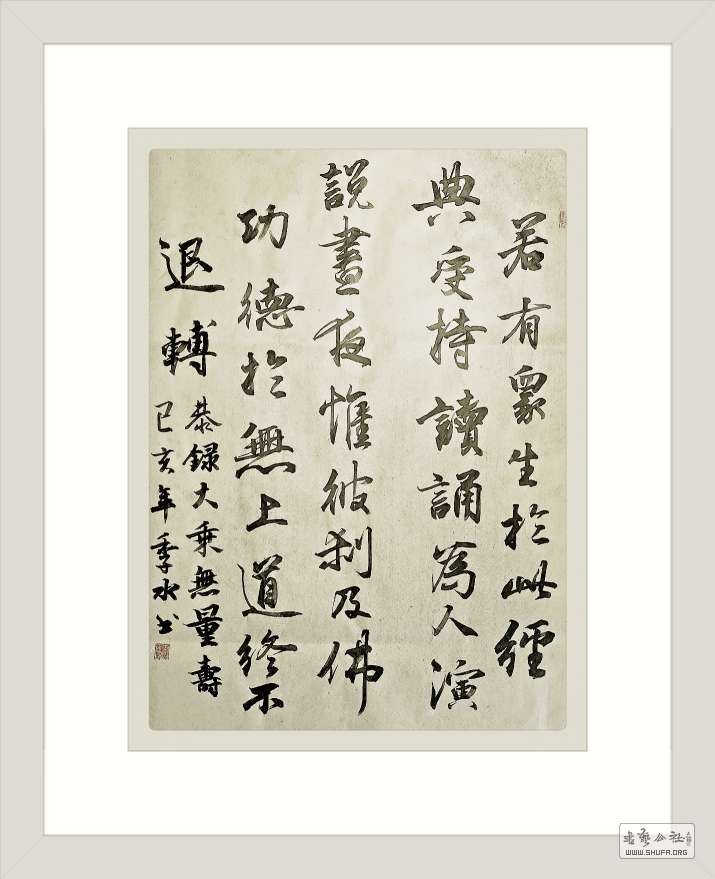 若有眾生於此經
典受持讀誦為人演
説晝夜惟彼刹及佛
功德於無上道終不
退轉
恭録大乘無量壽
己亥年季水书
书艺公社
WWW.SHUFA.ORG